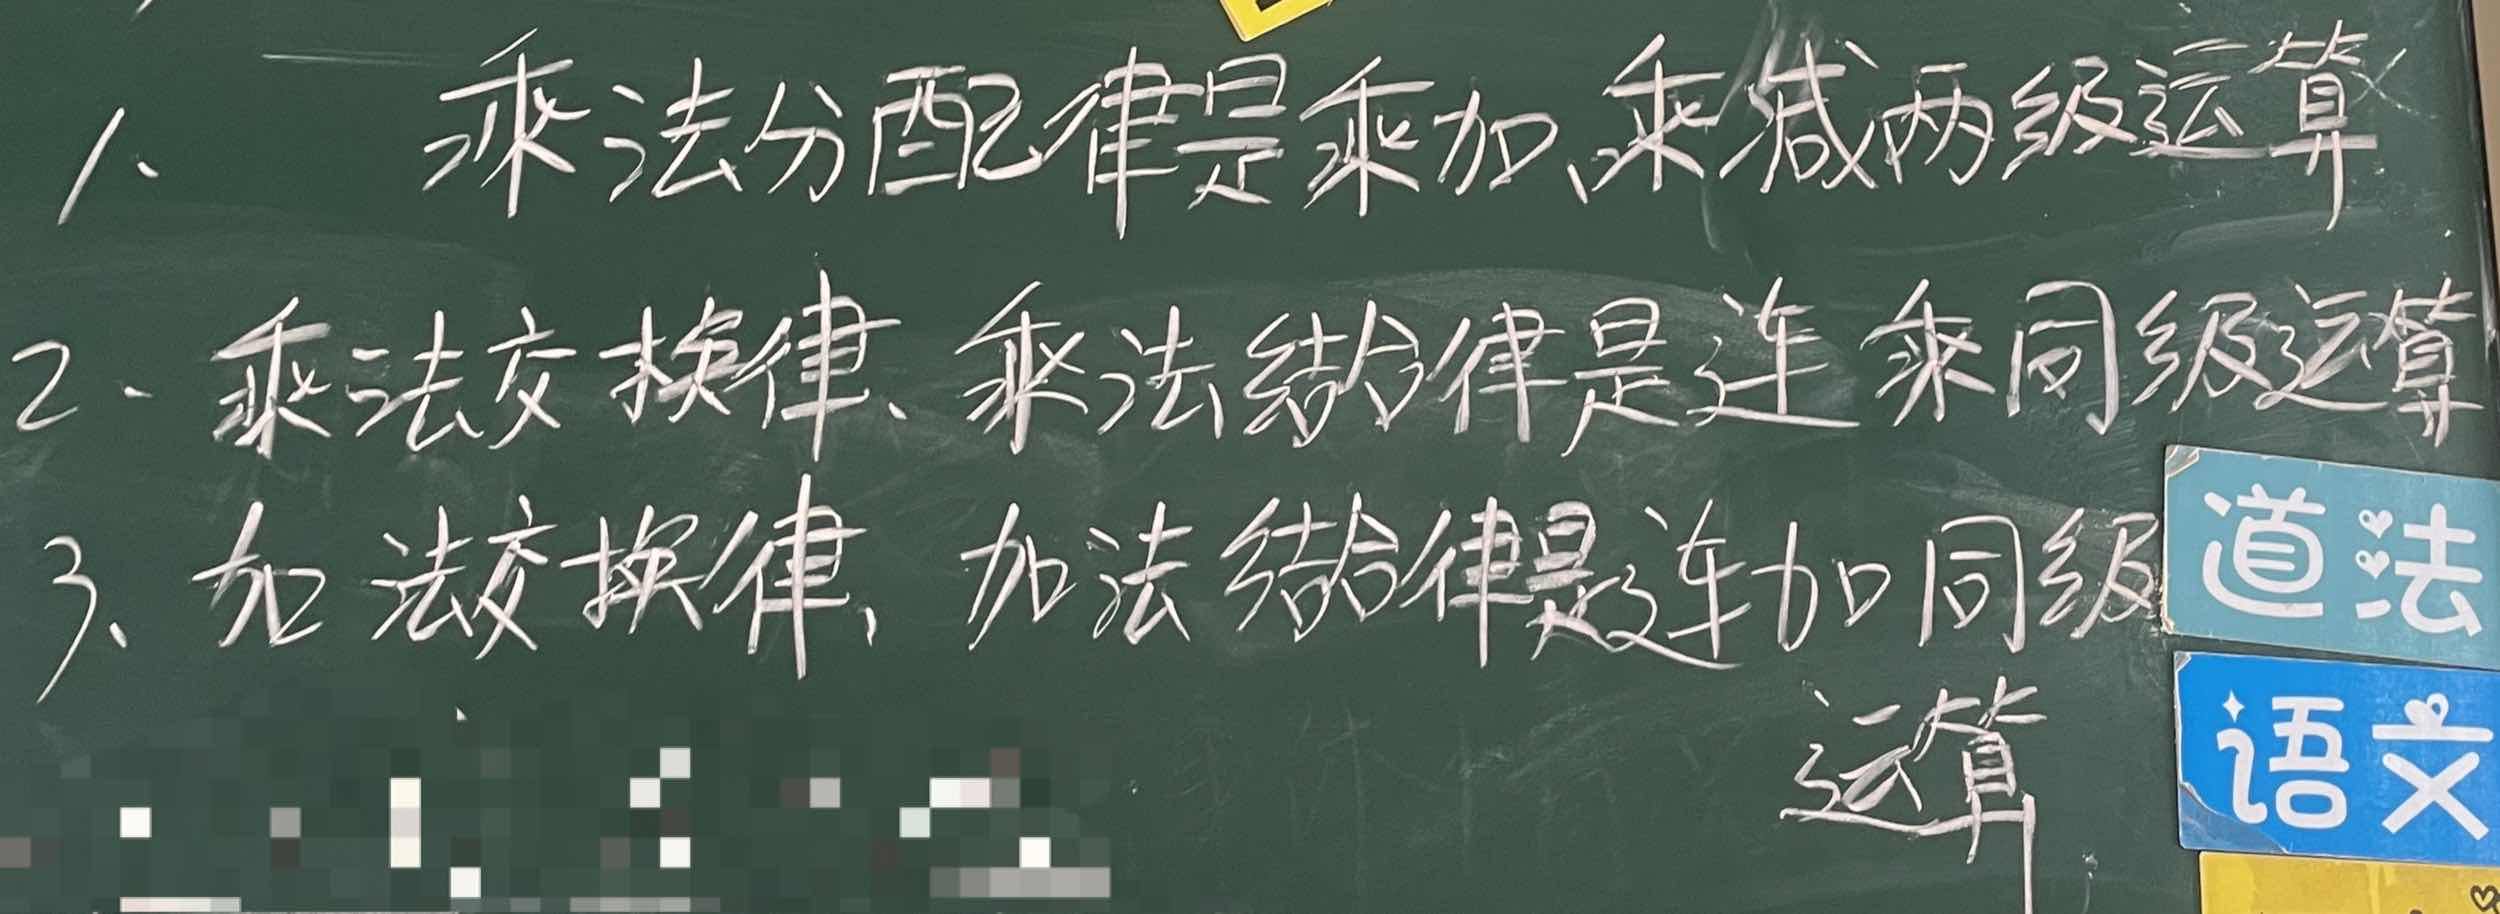 1、乘法分配律是乘加、乘减两级运算
2、乘法交换律、乘法结合律是连乘同级运算
3、加法交换律、加法结合律是连加同级
运算
道法
语文